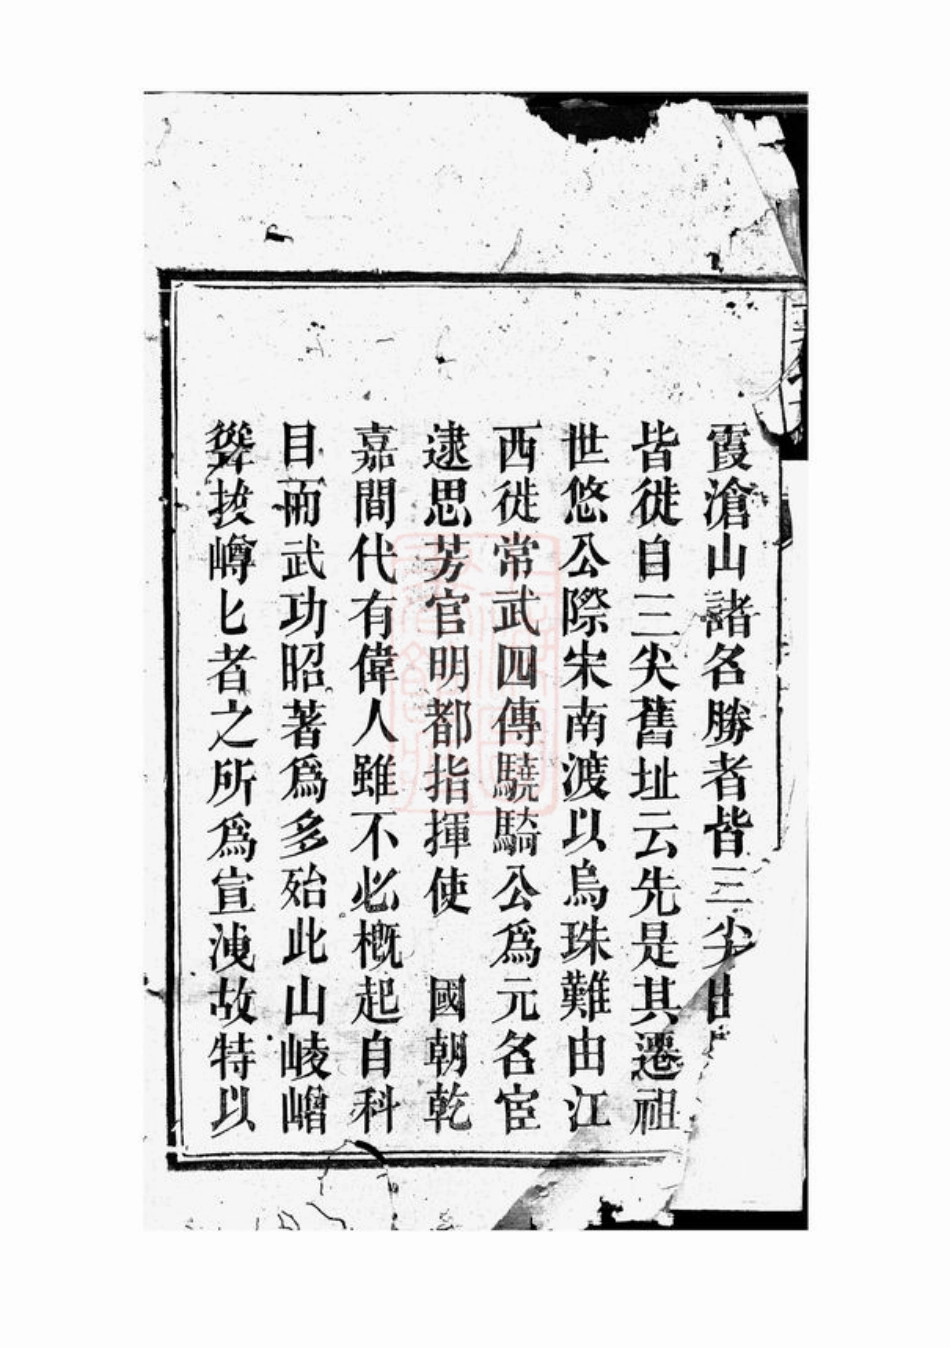 霞滄山諸名勝者皆三尖
皆徙自三尖舊址云先是其遷祖
世悠公際宋南渡以烏珠難由江
西徙常武四傳驍騎公爲元名宦
逮思芳官明都指揮使 國朝乾
嘉間代有偉人雖不必槪起自科
目而武功昭著爲多殆此山崚嶒
聳拔嶟匕者之所爲宣洩故特以